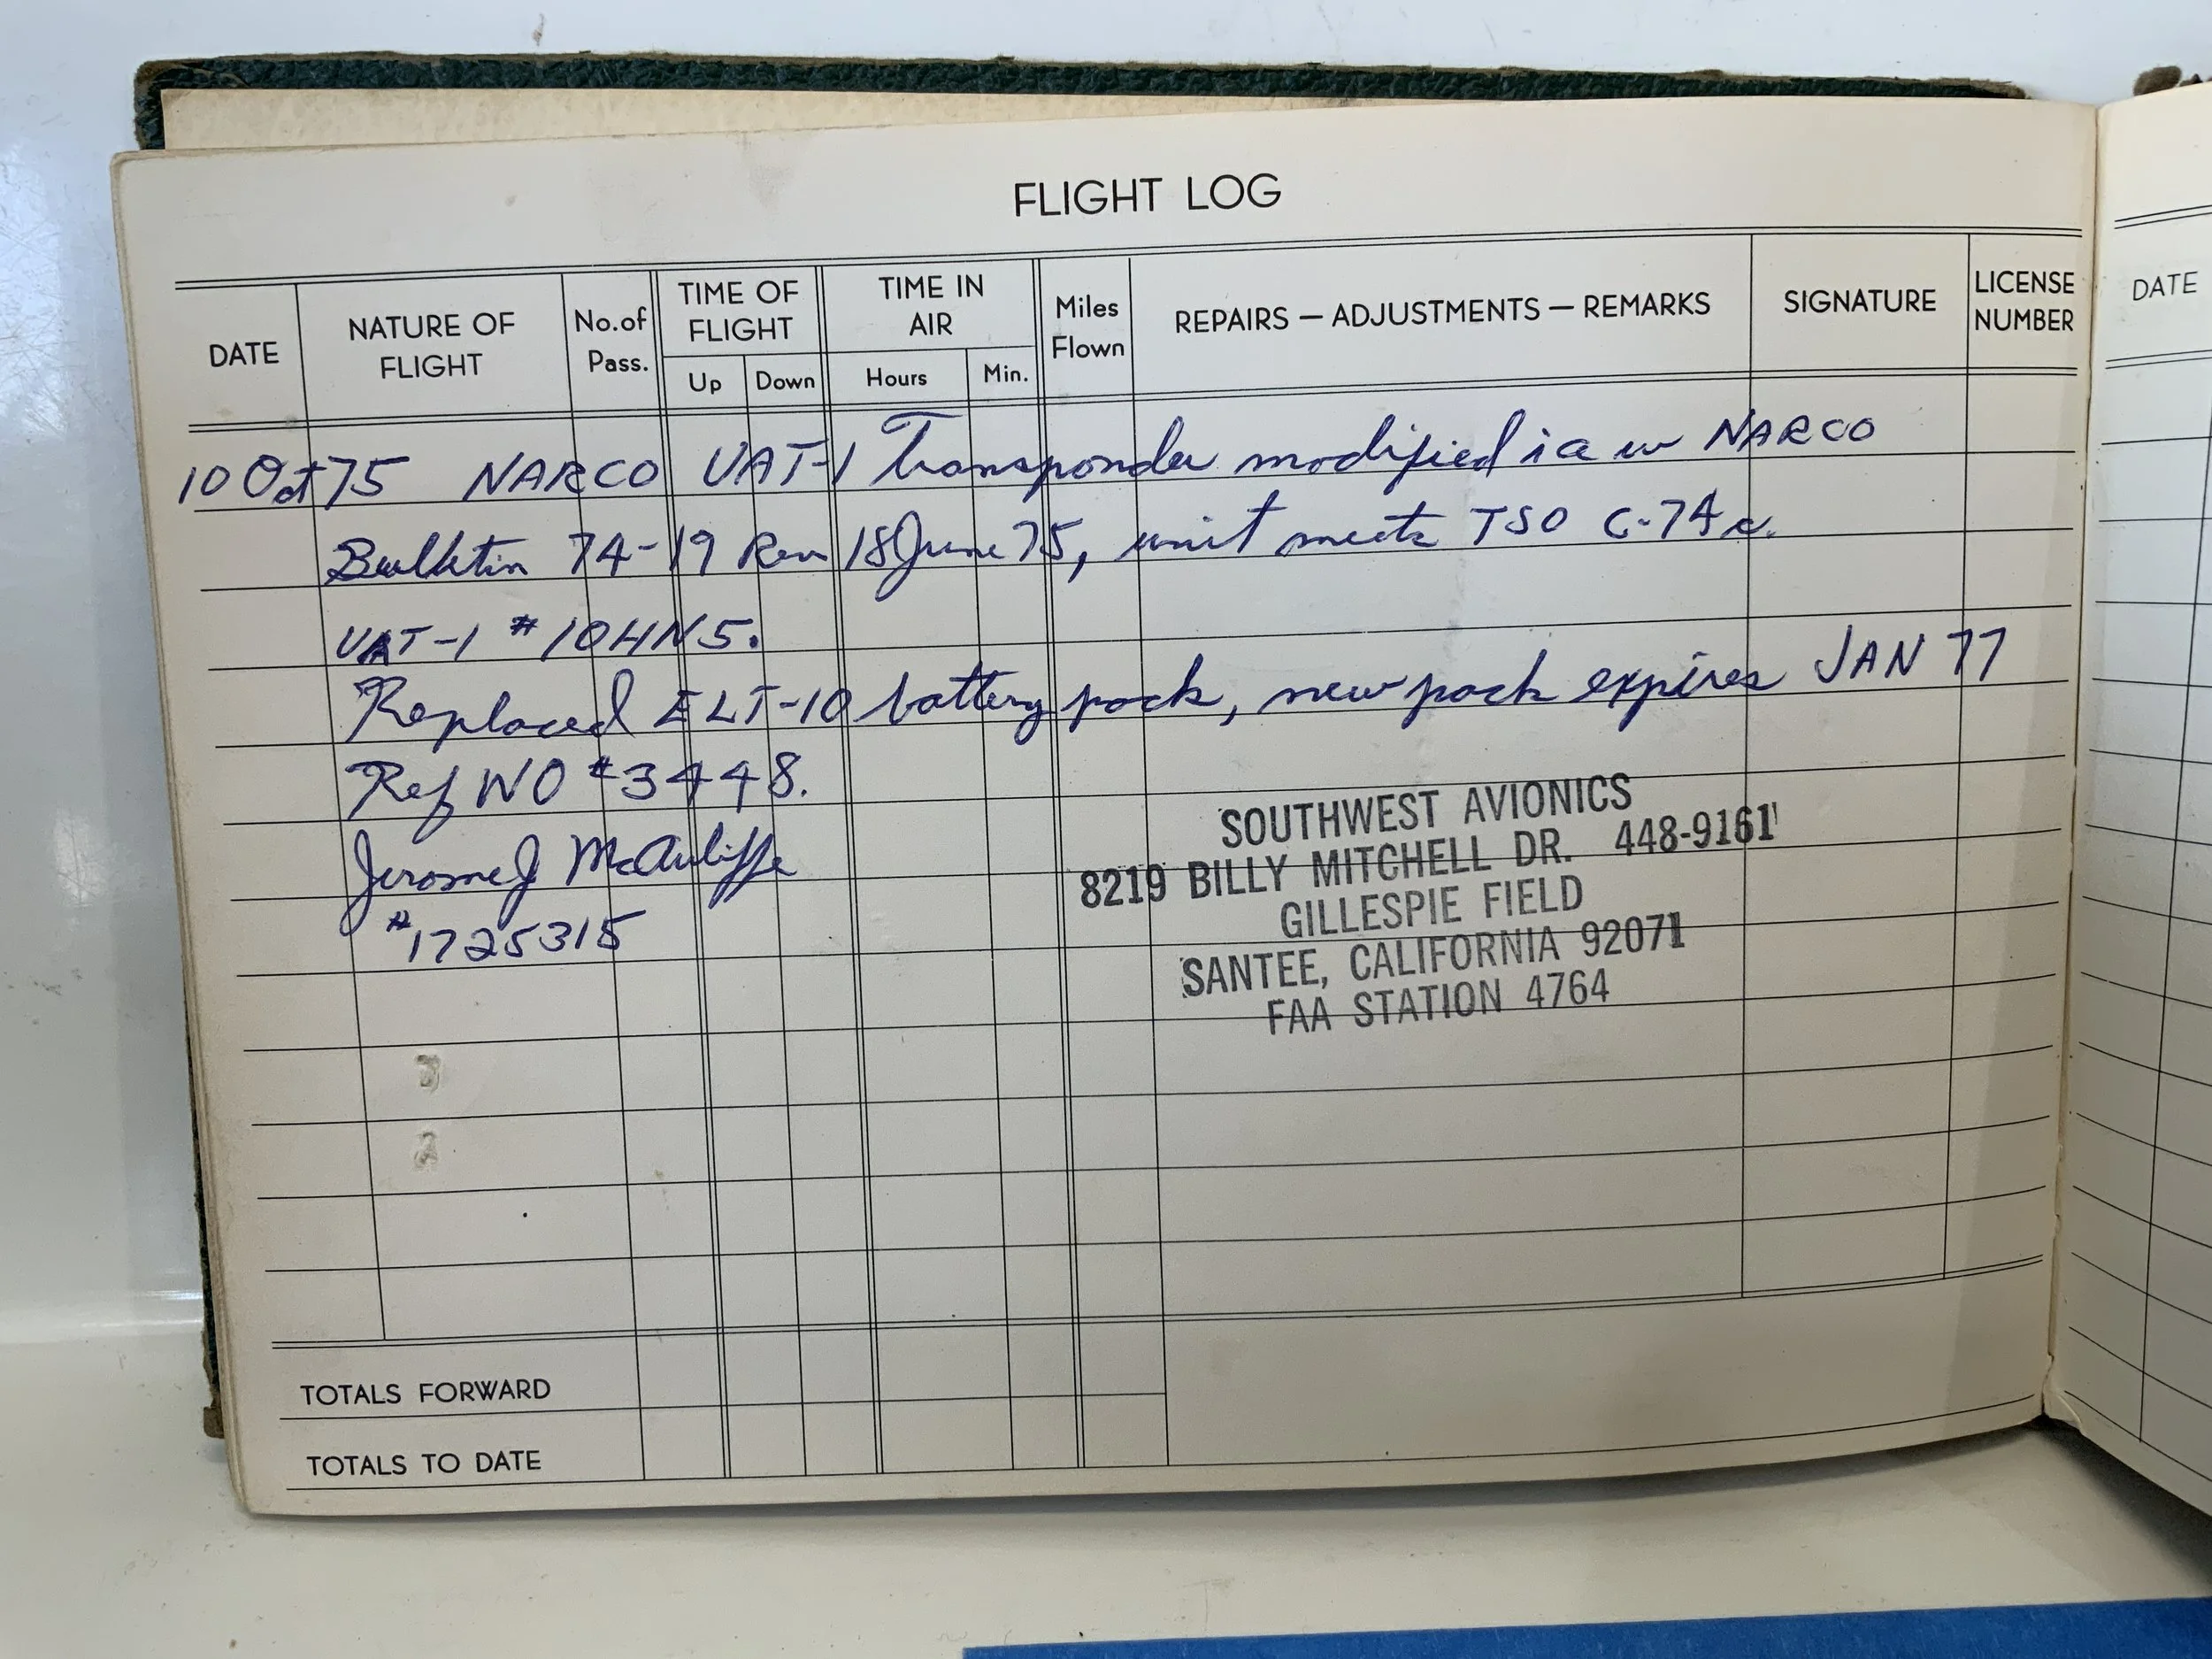 FLIGHT LOG
DATE
NATURE OF FLIGHT
No. of Pass.
TIME OF FLIGHT
Up
Down
TIME IN AIR
Hours
Min.
Miles Flown
REPAIRS — ADJUSTMENTS — REMARKS
SIGNATURE
LICENSE NUMBER
DATE
10 Oct 75 NARCO UAT-1 Transponder modified iaw NARCO
Bulletin 74-19 Rev 18 June 75, unit meets TSO C-74c.
UAT-1 #10HN5.
Replaced ELT-10 battery pack, new pack expires JAN 77
Ref WO #3448.
Jerome J McAuliffe
#1725315
SOUTHWEST AVIONICS
8219 BILLY MITCHELL DR. 448-9161
GILLESPIE FIELD
SANTEE, CALIFORNIA 92071
FAA STATION 4764
TOTALS FORWARD
TOTALS TO DATE